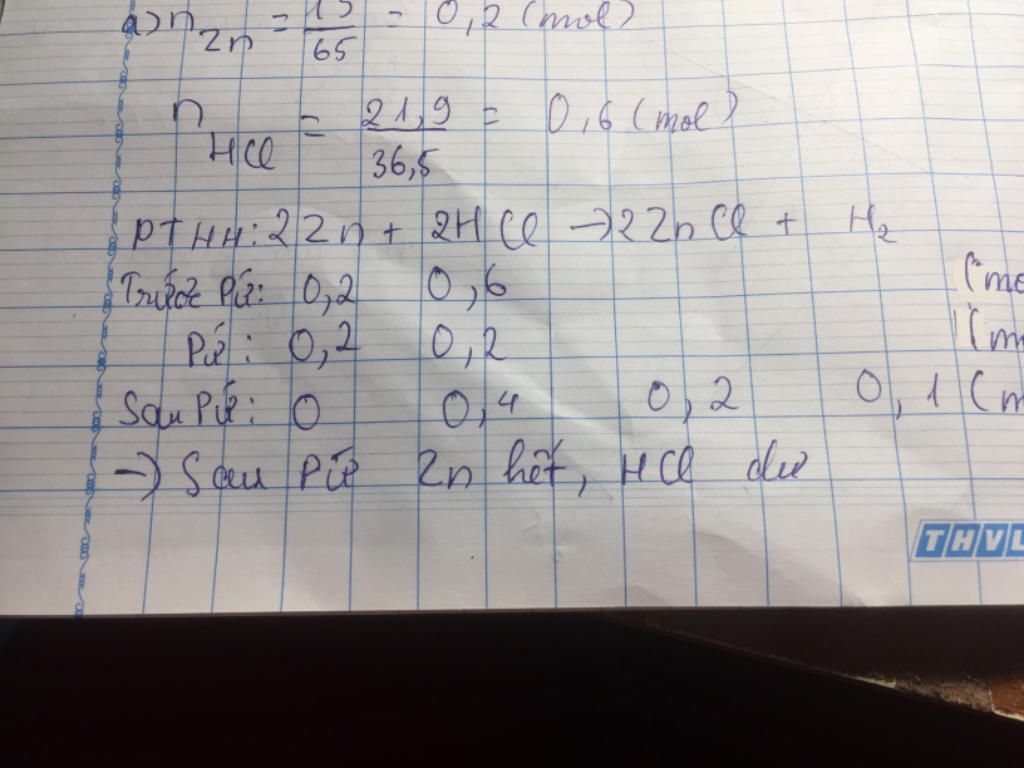 a) n Zn = 13/65 = 0,2 (mol)
n HCl = 21,9/36,5 = 0,6 (mol)
PTHH: 2Zn + 2HCl → 2ZnCl + H₂
Trước Pứ: 0,2 0,6 (mo
Pứ: 0,2 0,2 (m
Sau Pứ: 0 0,4 0,2 0,1 (m
→ Sau Pứ Zn hết, HCl dư
THVL